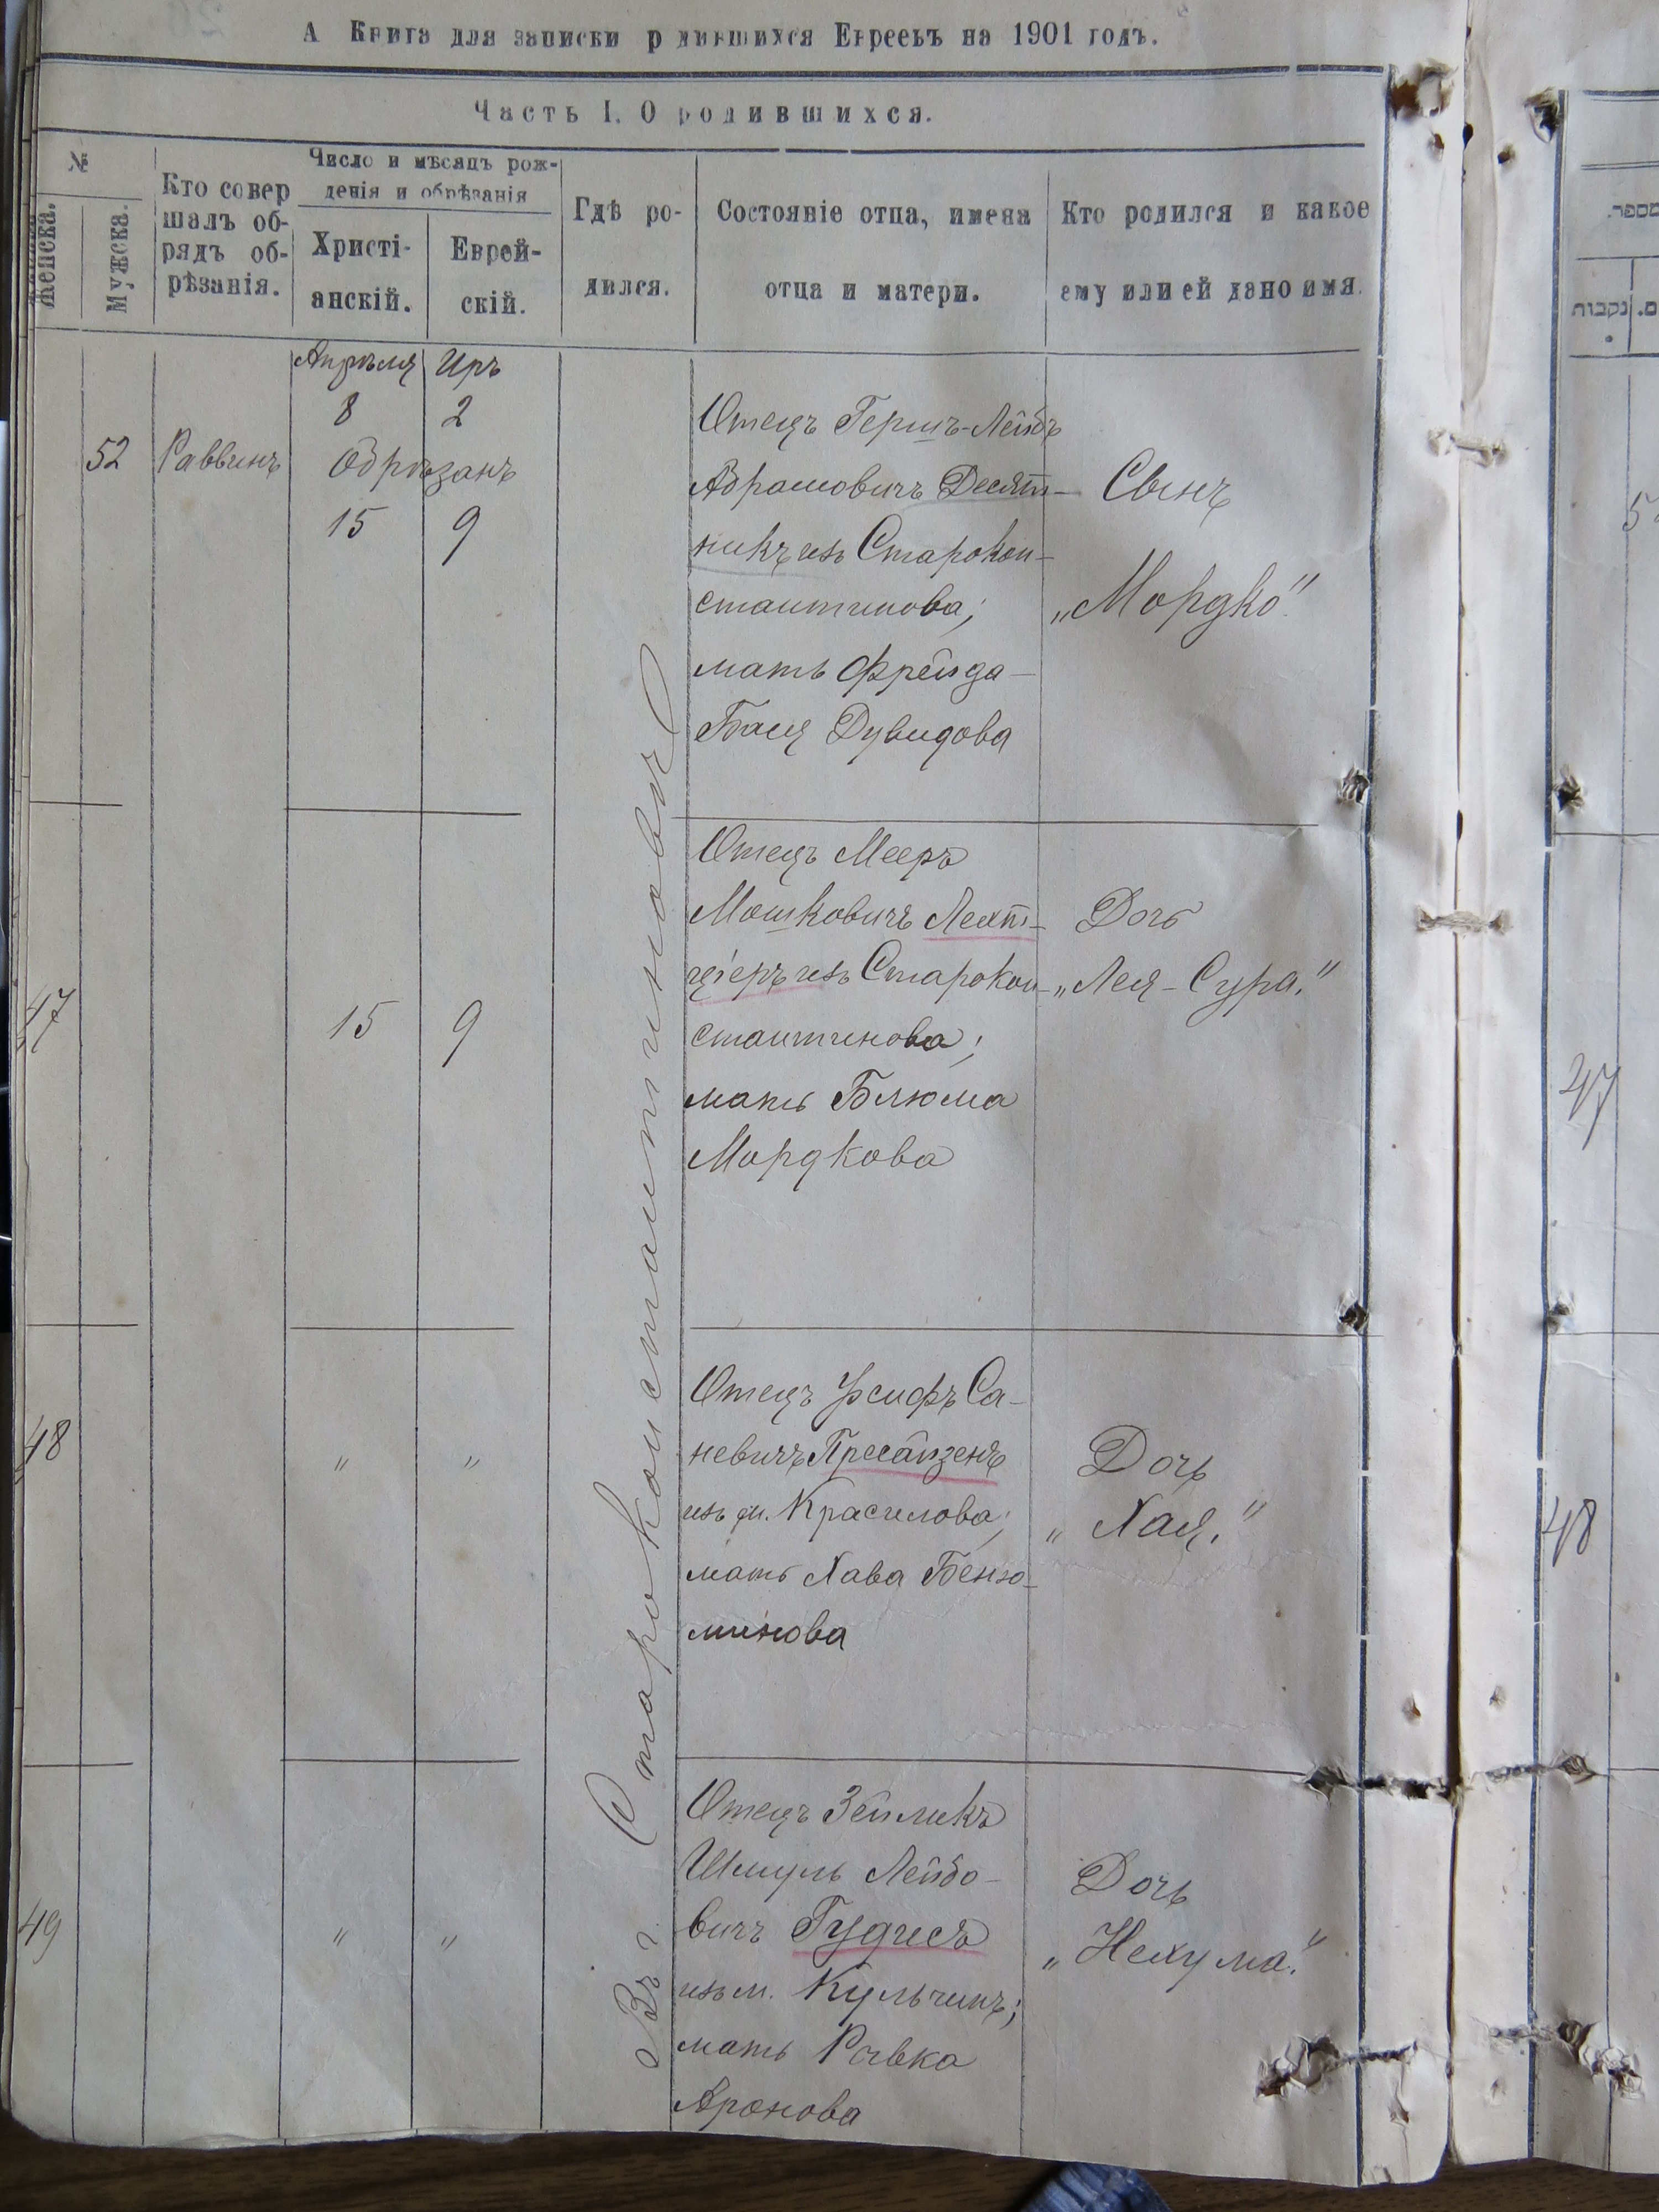 А Книга для записки родившихся Евреевъ на 1901 годъ.
Часть I. О родившихся.
№
Женска.
Мужска.
Кто совер
шалъ об-
рядъ об-
рѣзанія.
Число и мѣсяцъ рож-
денія и обрѣзанія
Христі-
анскій.
Еврей-
скій.
Гдѣ ро-
дился.
Состояніе отца, имена
отца и матери.
Кто родился и какое
ему или ей дано имя.
Апрѣля Иръ
8 2
52 Раввинъ Обрѣзанъ
15 9
Отецъ Гершъ-Лейбъ
Абрамовичъ Десят-
никъ изъ Старокон-
стантинова;
мать Фрейда-
Бася Дувидова
Сынъ
„Мордко".
Въ г. Староконстантиновѣ
47 15 9
Отецъ Мееръ
Мошковичъ Лехт-
ціеръ изъ Старокон-
стантинова;
мать Блюма
Мордкова
Дочь
„Лея-Сура."
48 " "
Отецъ Іосифъ Са-
невичъ
изъ м. Красилова;
мать Хава Беню-
минова
Дочь
„Хая."
49 " "
Отецъ Зейликъ
Шмуль Лейбо-
вичъ Гудисъ
изъ м. Кульчинъ;
мать Ривка
Аронова
Дочь
„Нехума".
מספר.
נקבות
47
48